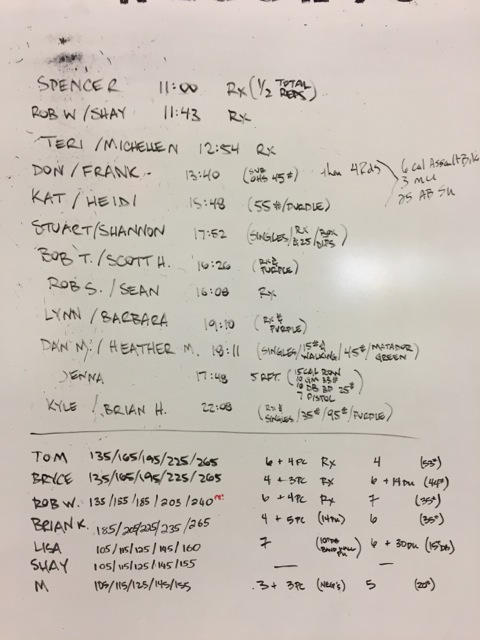 SPENCER 11:00 RX (1/2 TOTAL REPS)
ROB W / SHAY 11:43 RX
TERI / MICHELLEN 12:54 RX
DON / FRANK 13:40 (SUB OHS 45#) then 4Rds 6 cal Assault Bike
3 MU
25 AB SU
KAT / HEIDI 15:48 (55#/PURPLE)
STUART/SHANNON 17:52 (SINGLES/RX & 25/BOX DIPS)
BOB T. / SCOTT H. 16:26 (RX & PURPLE)
ROB S. / SEAN 16:08 RX
LYNN / BARBARA 19:10 (RX & PURPLE)
DAN M. / HEATHER M. 18:11 (SINGLES/15# & WALKING/45#/MATADOR GREEN)
JENNA 17:48 5 RFT. (15 CAL ROW
10 DB 25#
7 PISTOL)
KYLE / BRIAN H. 22:08 (RX & SINGLES/35#/95#/PURPLE)
TOM 135/165/195/225/265 6 + 4PC RX 4 (53#)
BRYCE 135/165/195/225/265 4 + 3PC RX 6 + 14DU (44#)
ROB W. 135/155/185/205/240 6 + 4PC RX 7 (35#)
BRIAN K. 185/205/225/235/265 4 + 5PC (14DU) 6 (35#)
LISA 105/115/125/145/160 7 6 + 30DU (15DB)
SHAY 105/115/125/145/155 — —
M 105/115/125/145/155 3 + 3PC (NEG'S) 5 (20#)